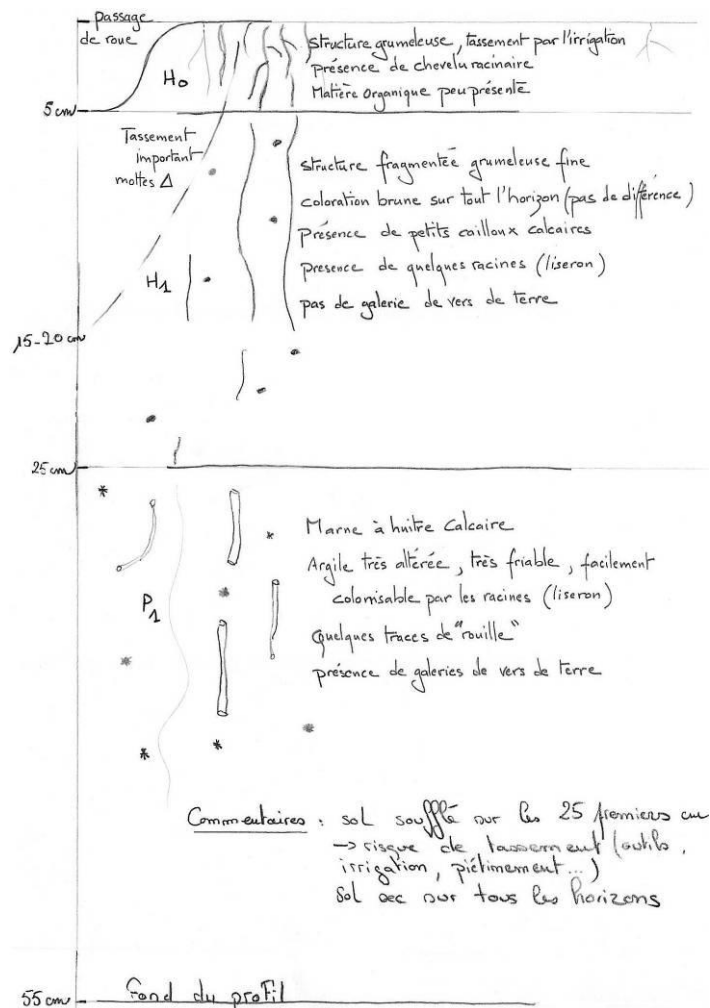 passage
de roue
structure grumeleuse, tassement par l'irrigation
présence de chevelu racinaire
Matière Organique peu présente
H0
5 cm
Tassement
important
mottes Δ
structure fragmentée grumeleuse fine
coloration brune sur tout l'horizon (pas de différence)
présence de petits cailloux calcaires
presence de quelques racines (liseron)
pas de galerie de vers de terre
H1
15-20 cm
25 cm
Marne à huitre Calcaire
Argile très altérée, très friable, facilement
colonisable par les racines (liseron)
quelques traces de "rouille"
présence de galeries de vers de terre
P1
Commentaires : sol soufflé sur les 25 premiers cm
-> risque de tassement (outils,
irrigation, piétinement...)
Sol sec sur tous les horizons
55 cm
Fond du profil